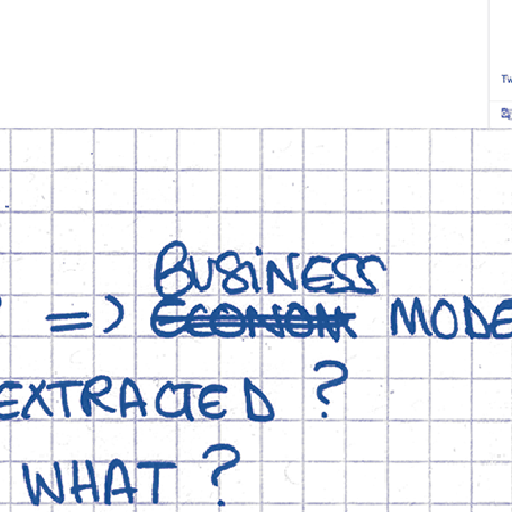 BUSINESS
=> ECONOM MODE
EXTRACTED ?
WHAT ?